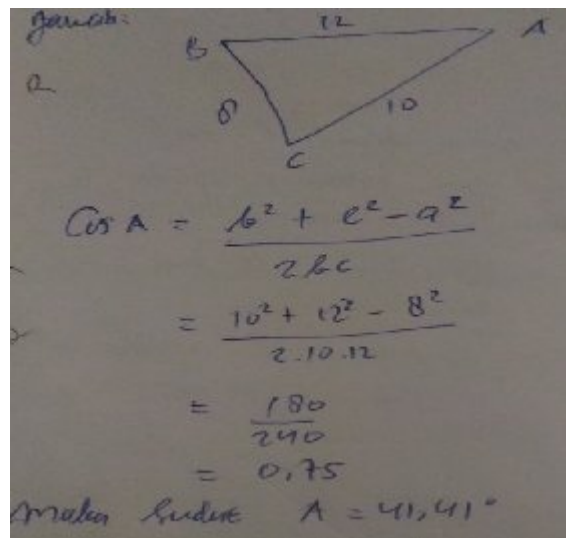 Jawab:
12
B A
8 10
C
Cos A = b² + c² - a²
2bc
= 10² + 12² - 8²
2.10.12
= 180
240
= 0,75
maka sudut A = 41,41°